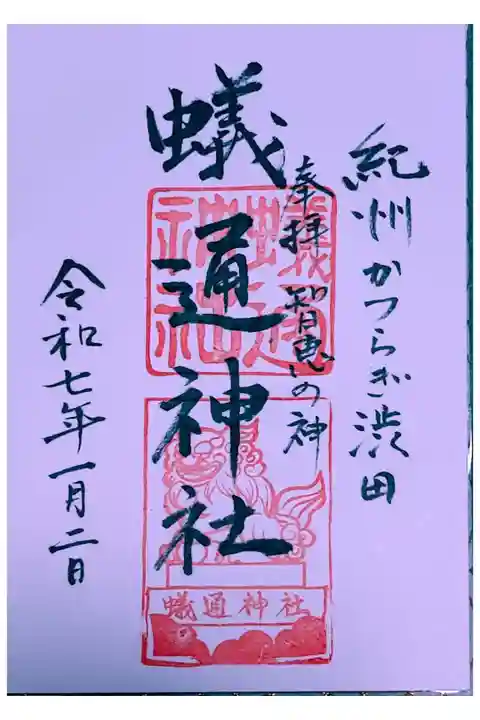 紀州かつらぎ渋田
奉拝 智恵の神
蟻通神社
蟻通神社
蟻通神社
令和七年一月二日